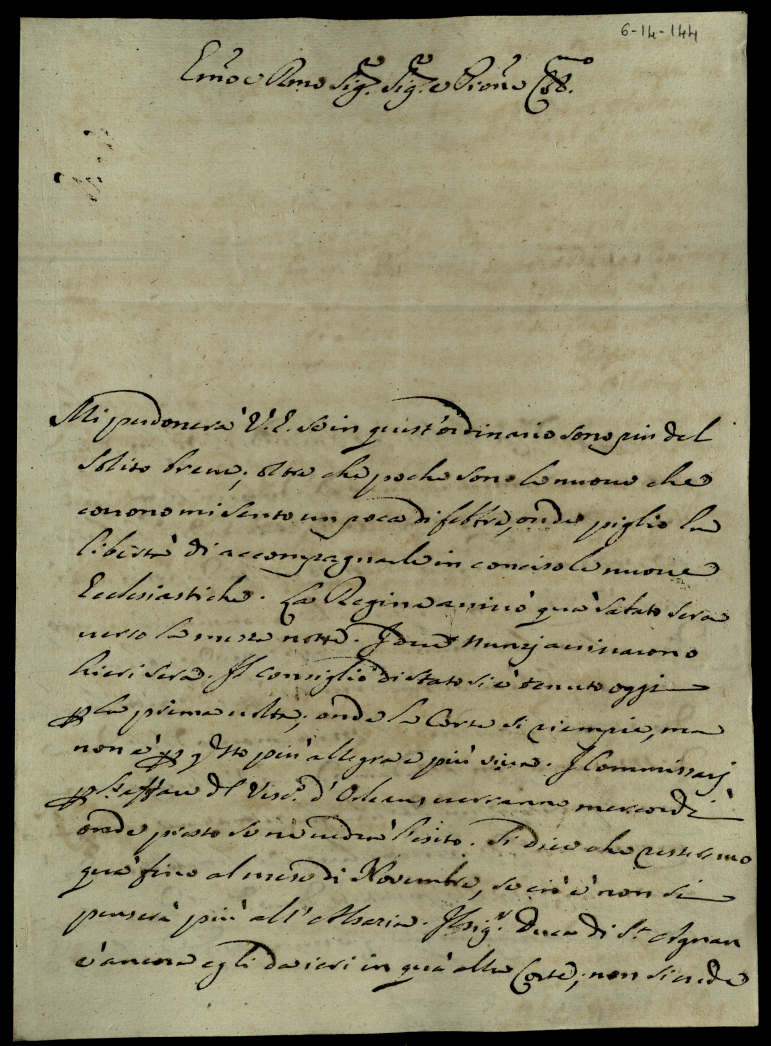 6-14-144
Em̃o e Rmo Sig.r Sig.r e Pron̄e Coll.mo
Mi perdonerà V.E. se in quest'ordinario sono più del
solito breve; oltre che poche sono le nuove che
corrono mi sento un poco di febbre, onde piglio la
libertà di accompagnarle in conciso le nuove
Ecclesiastiche. La Regina arrivò quà sabato sera
verso la mezza notte. I due Nunzj arrivarono
hieri sera. Il consiglio di stato si è tenuto oggi
p la prima volta; onde la Corte si riempie, ma
non è p q̃sto più allegra e più viva. I Commissarj
p l'affare dl Vesc.o d'Orleans verranno mercordì
onde presto se ne vedrà l'esito. Si dice che restaremo
quà fino al mese di Novembre, se ciò è non si
penserà più all' Alsazia. Il sig.r Duca di S.t Agnan
è ancora egli da ieri in quà alla Corte; non si crede